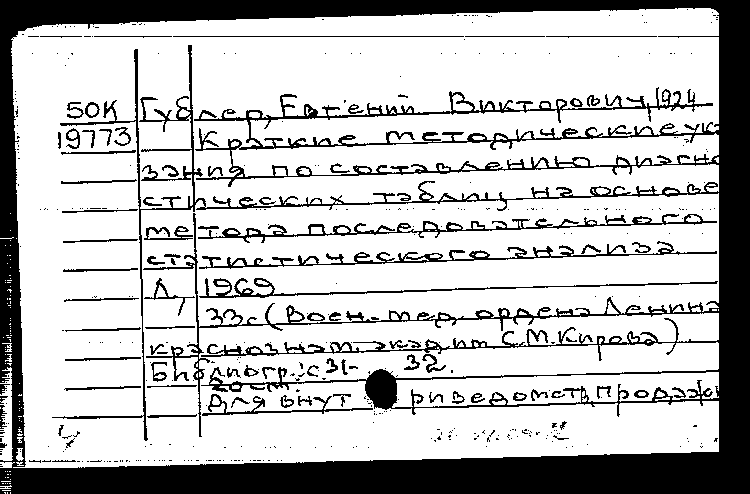 50К Гублер, Евгений Викторович, 1924
19773 Краткие методические ука
зания по составлению диагно
стических таблиц на основе
метода последовательного
статистического анализа.
Л, 1969.
33с (Воен.-мед. ордена Ленина
краснознам. акад им С.М.Кирова).
Библиогр.: с 31- 32.
Для внут риведомств, продажи